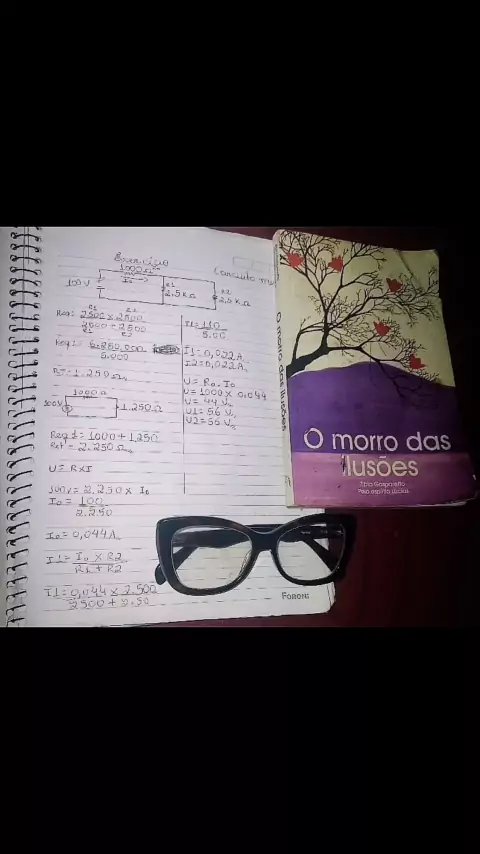 Exercício
1000Ω
Circuito
I0
100V
R1
2,5KΩ
R2
2,5KΩ
Req1 2500 x 2500
2500 + 2500
5.000
RT = 1.250Ω
1000Ω
100V
1.250Ω
Req1 = 1000 + 1250
Ret = 2.250Ω
U = R x I
100V = 2.250 x I0
I0 = 100
2.250
I0 = 0,044A
I1 = I0 x R2
R1 + R2
I1 = 0,044 x 2.500
2500 + 2.50
I1 = 110
I2 = 0,022A
U = R0.I0
U = 1000 x 0,044
U = 44V
U1 = 56V
U2 = 56V
FORONI
O morro das ilusões
O morro das
ilusões
Zibia Gasparetto